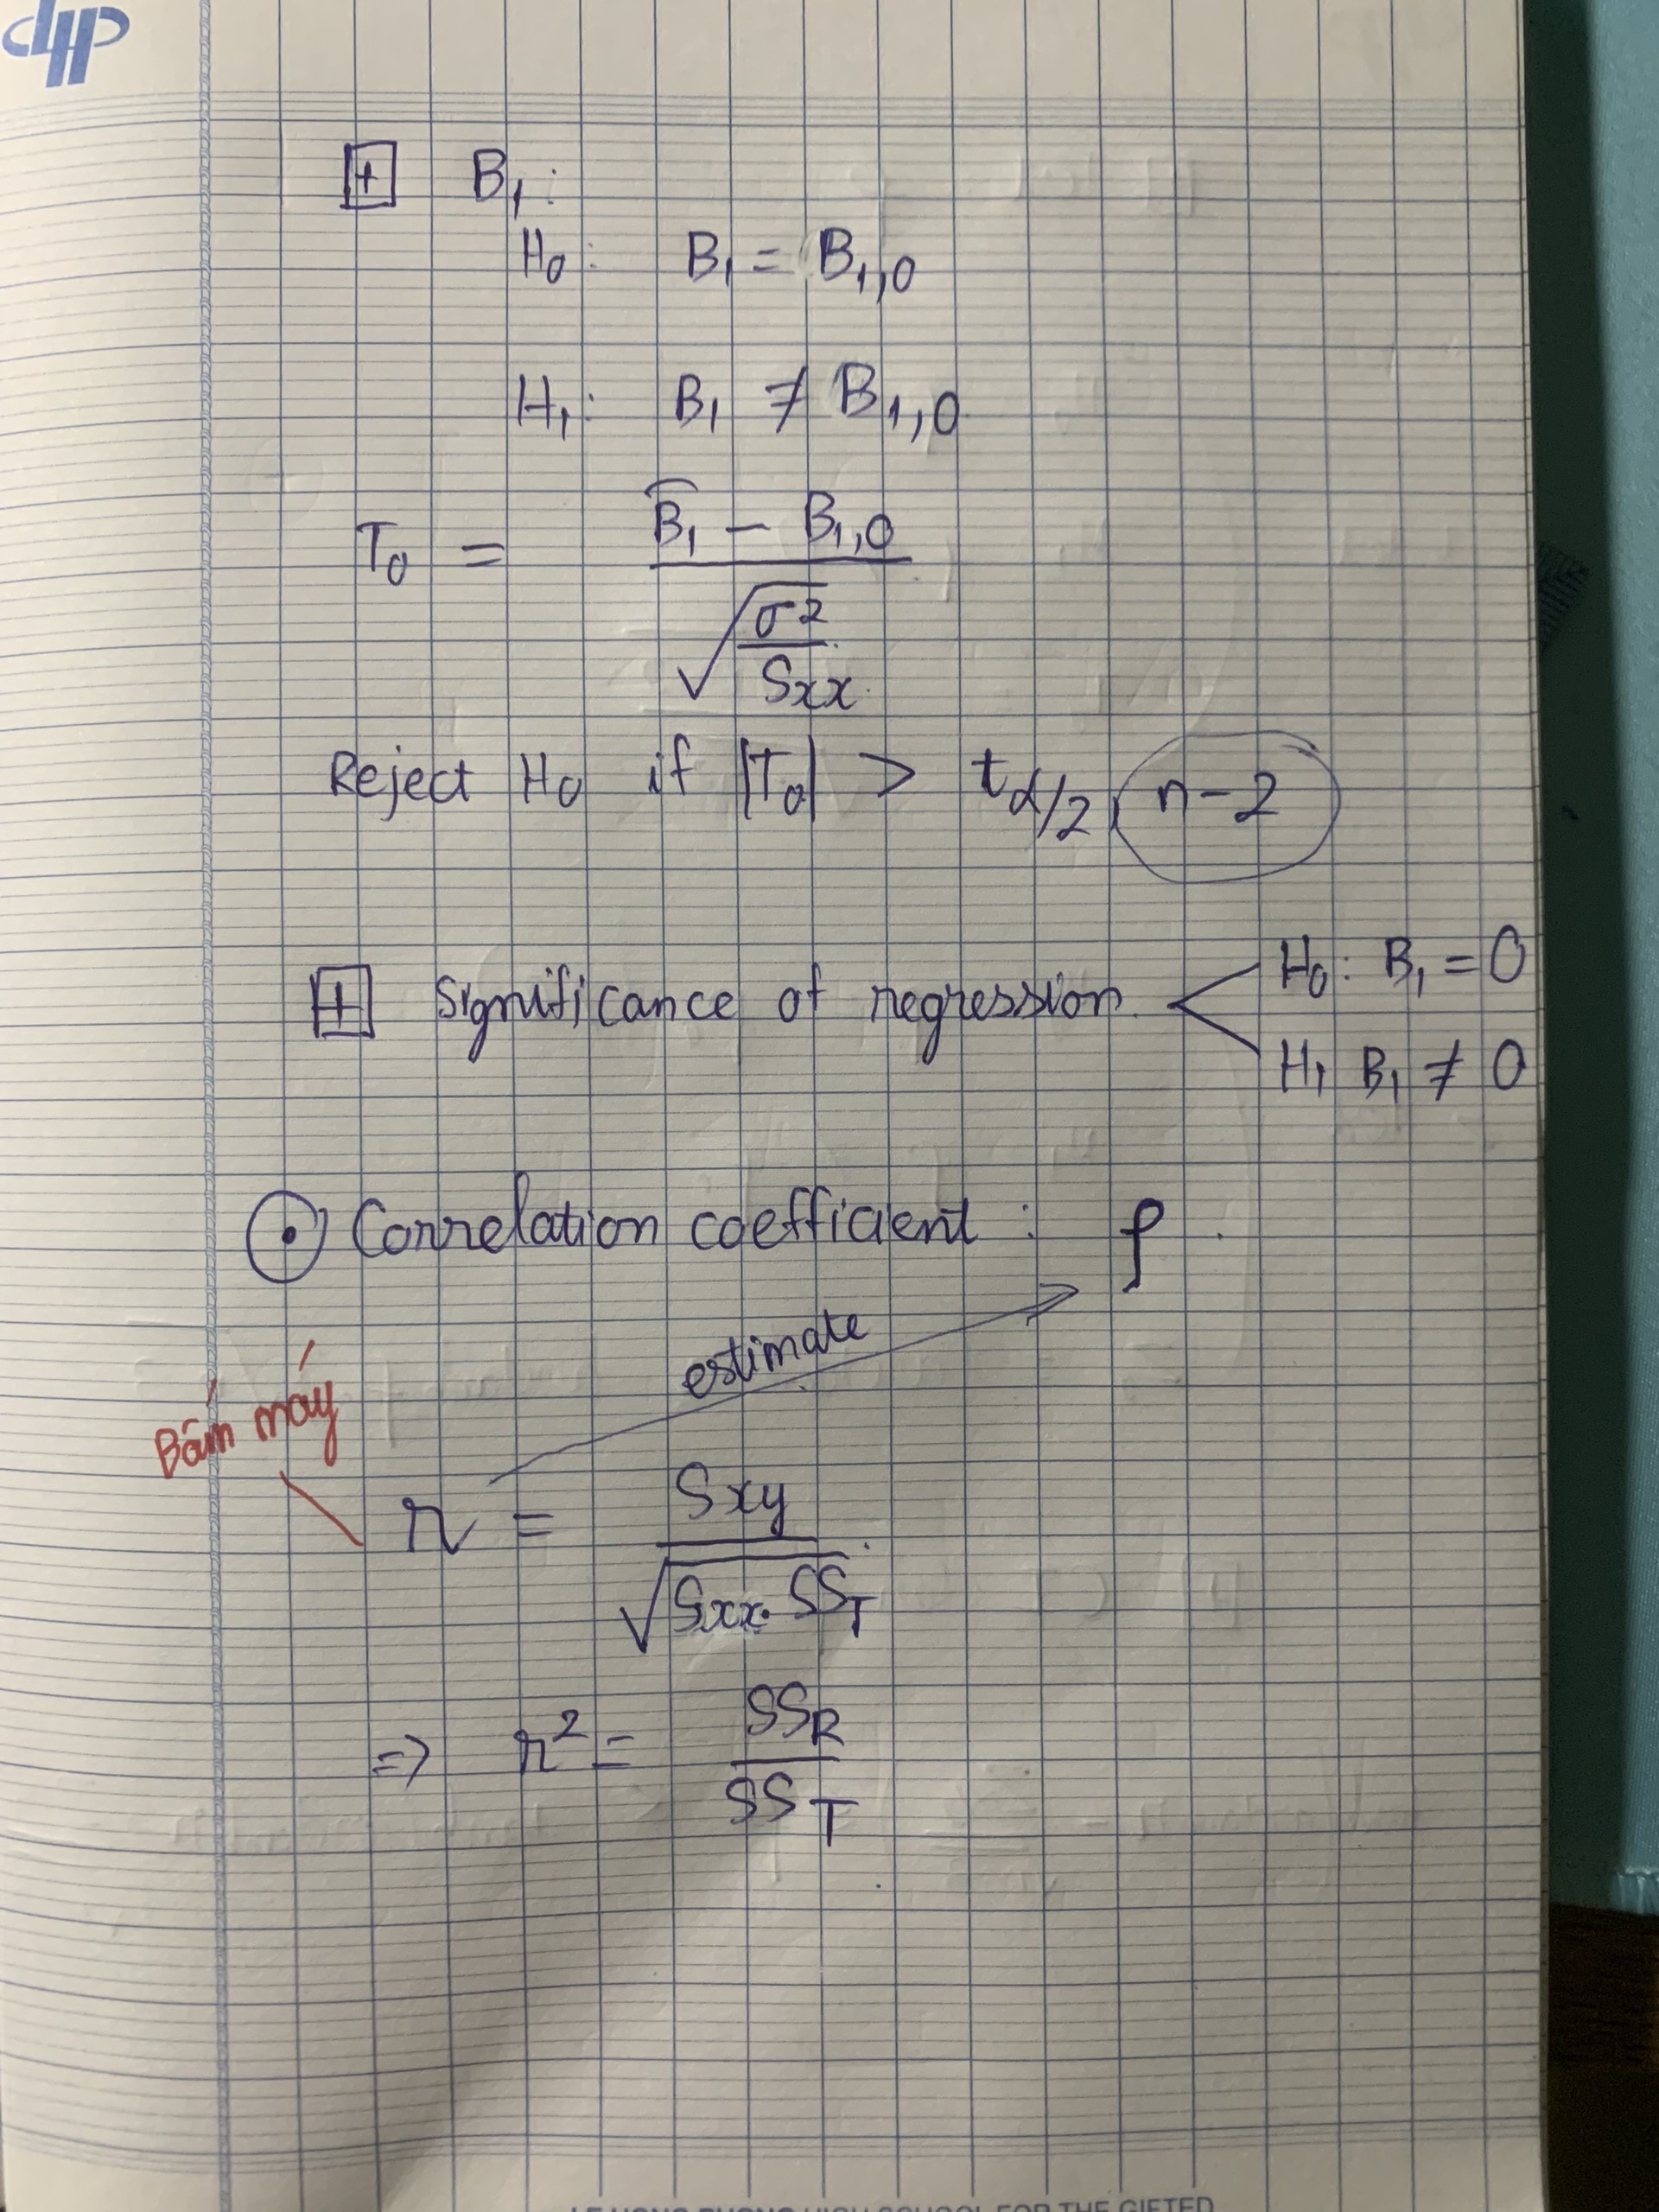 LHP
+ B₁:
H₀: B₁ = B₁,₀
H₁: B₁ ≠ B₁,₀
T₀ = (B̂₁ − B₁,₀) / √(σ² / Sxx)
Reject H₀ if |T₀| > t α/2, n−2
+ Significance of regression. < H₀: B₁ = 0
H₁ B₁ ≠ 0
⊙ Correlation coefficient: ρ.
estimate
Bấm máy
r = Sxy / √(Sxx. SS_T)
=> r² = SS_R / SS_T
LE HONG PHONG HIGH SCHOOL FOR THE GIFTED